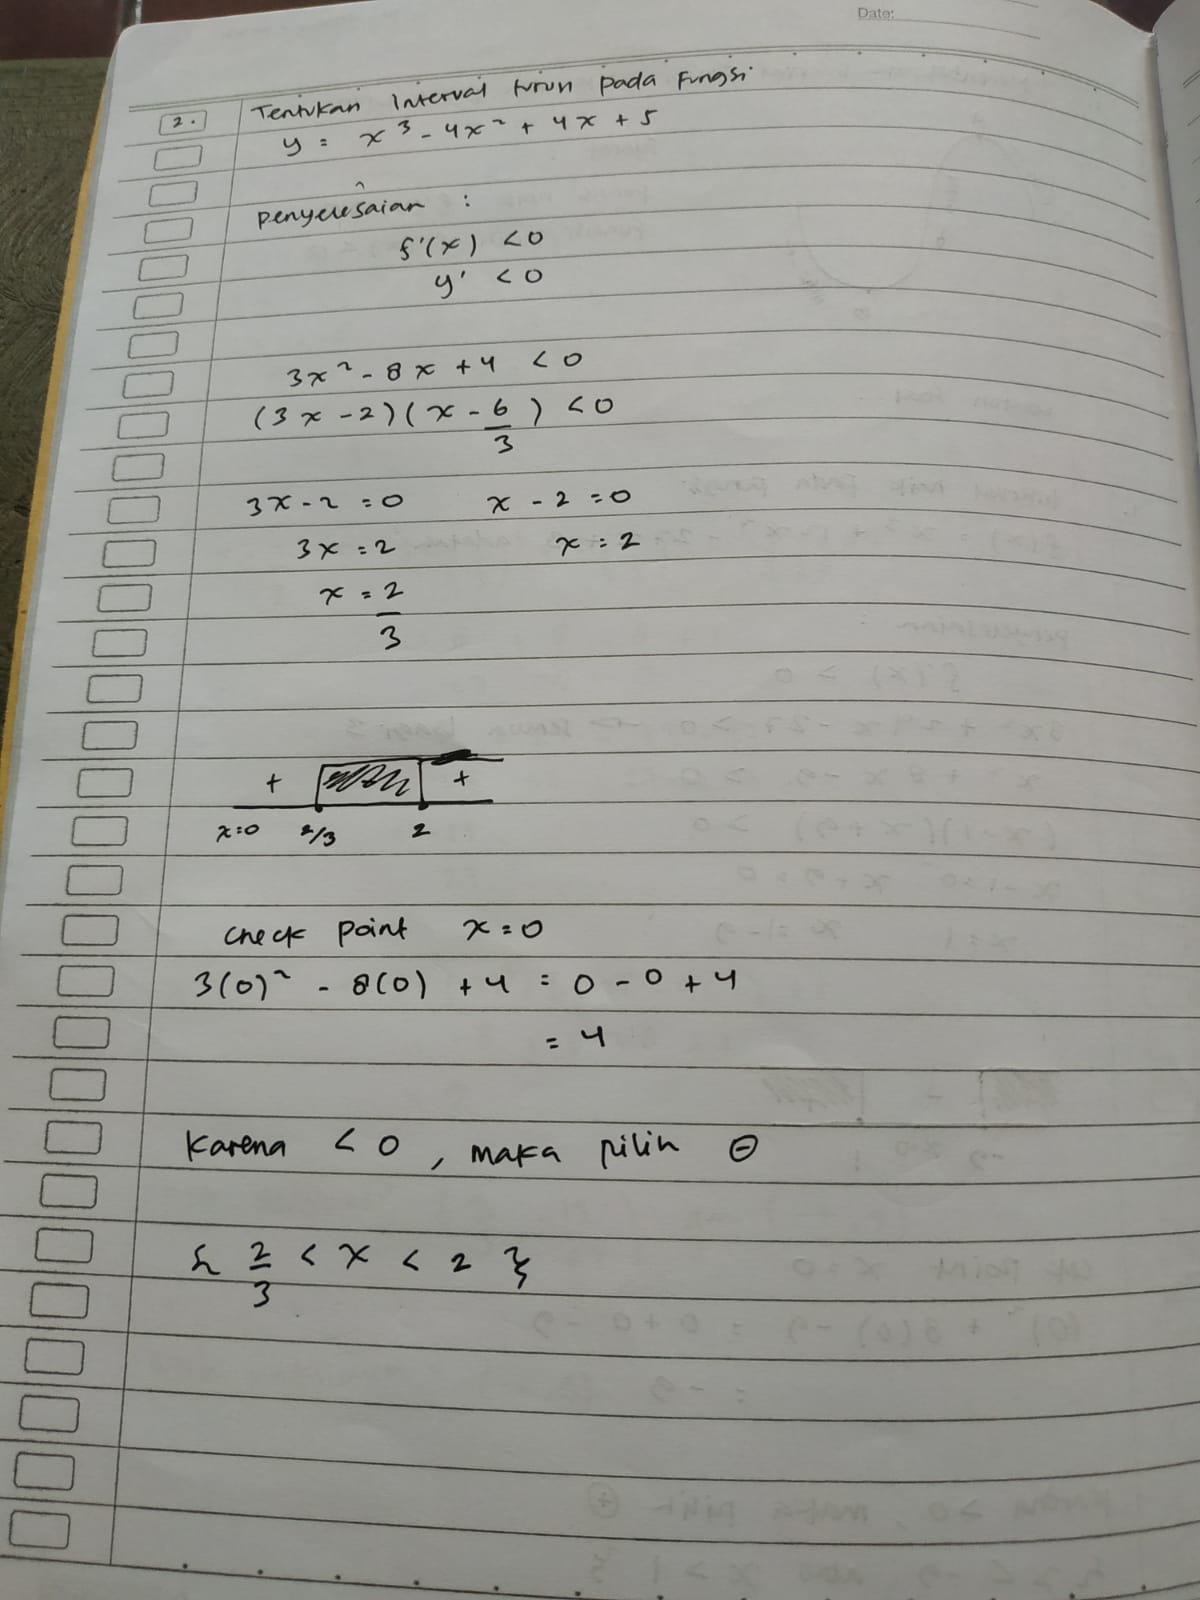 Date:
2. Tentukan Interval turun pada Fungsi
y = x³ - 4x² + 4x + 5
penyelesaian :
f'(x) < 0
y' < 0
3x² - 8x + 4 < 0
(3x - 2)(x - 6/3) < 0
3x - 2 = 0 x - 2 = 0
3x = 2 x = 2
x = 2/3
+ +
x=0 2/3 2
check point x = 0
3(0)² - 8(0) + 4 = 0 - 0 + 4
= 4
Karena < 0 , maka pilih ⊖
{ 2/3 < x < 2 }